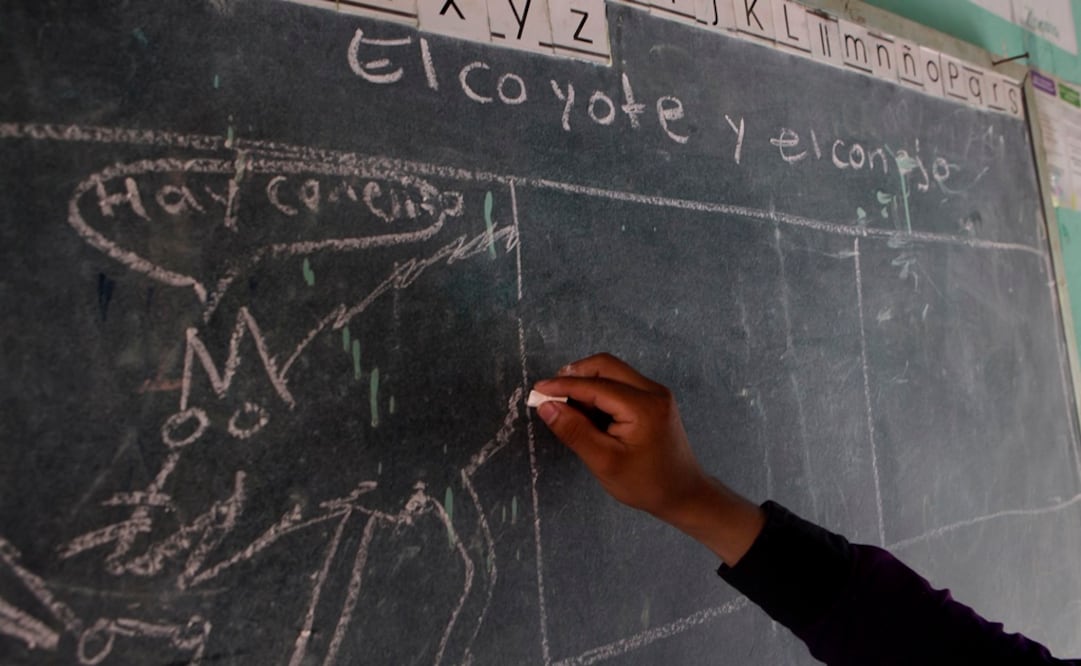 x y z j K L ll m n ñ o p q r s
El coyote y el conejo
Hay